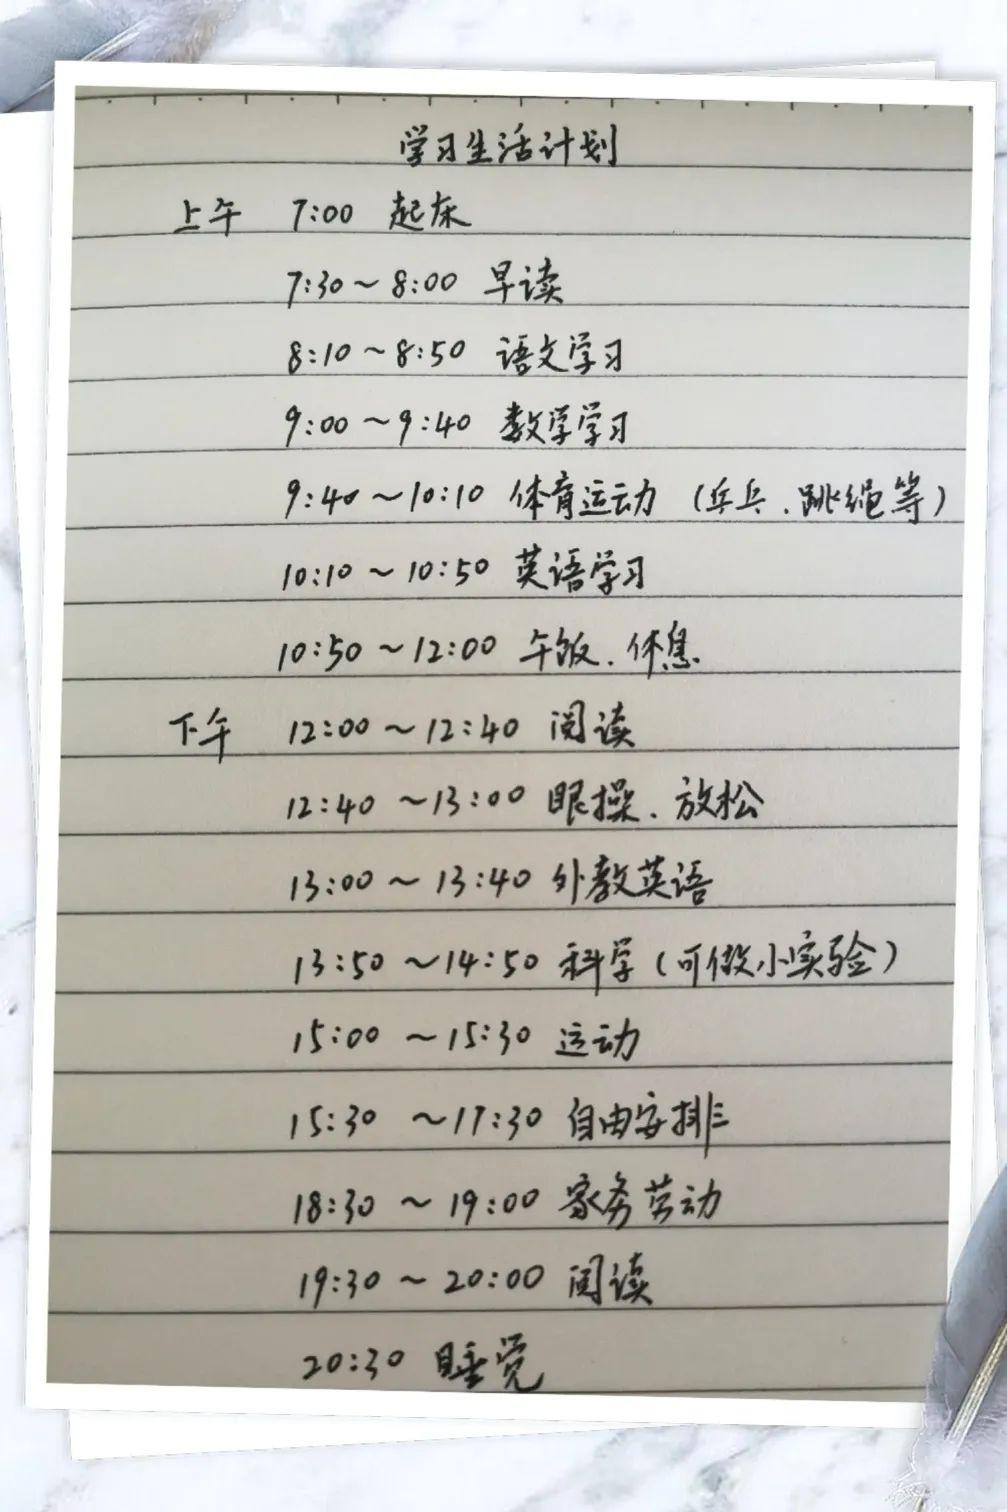 学习生活计划
上午 7:00 起床
7:30~8:00 早读
8:10~8:50 语文学习
9:00~9:40 数学学习
9:40~10:10 体育运动（乒乓、跳绳等）
10:10~10:50 英语学习
10:50~12:00 午饭、休息
下午 12:00~12:40 阅读
12:40~13:00 眼操、放松
13:00~13:40 外教英语
13:50~14:50 科学（可做小实验）
15:00~15:30 运动
15:30~17:30 自由安排
18:30~19:00 家务劳动
19:30~20:00 阅读
20:30 睡觉